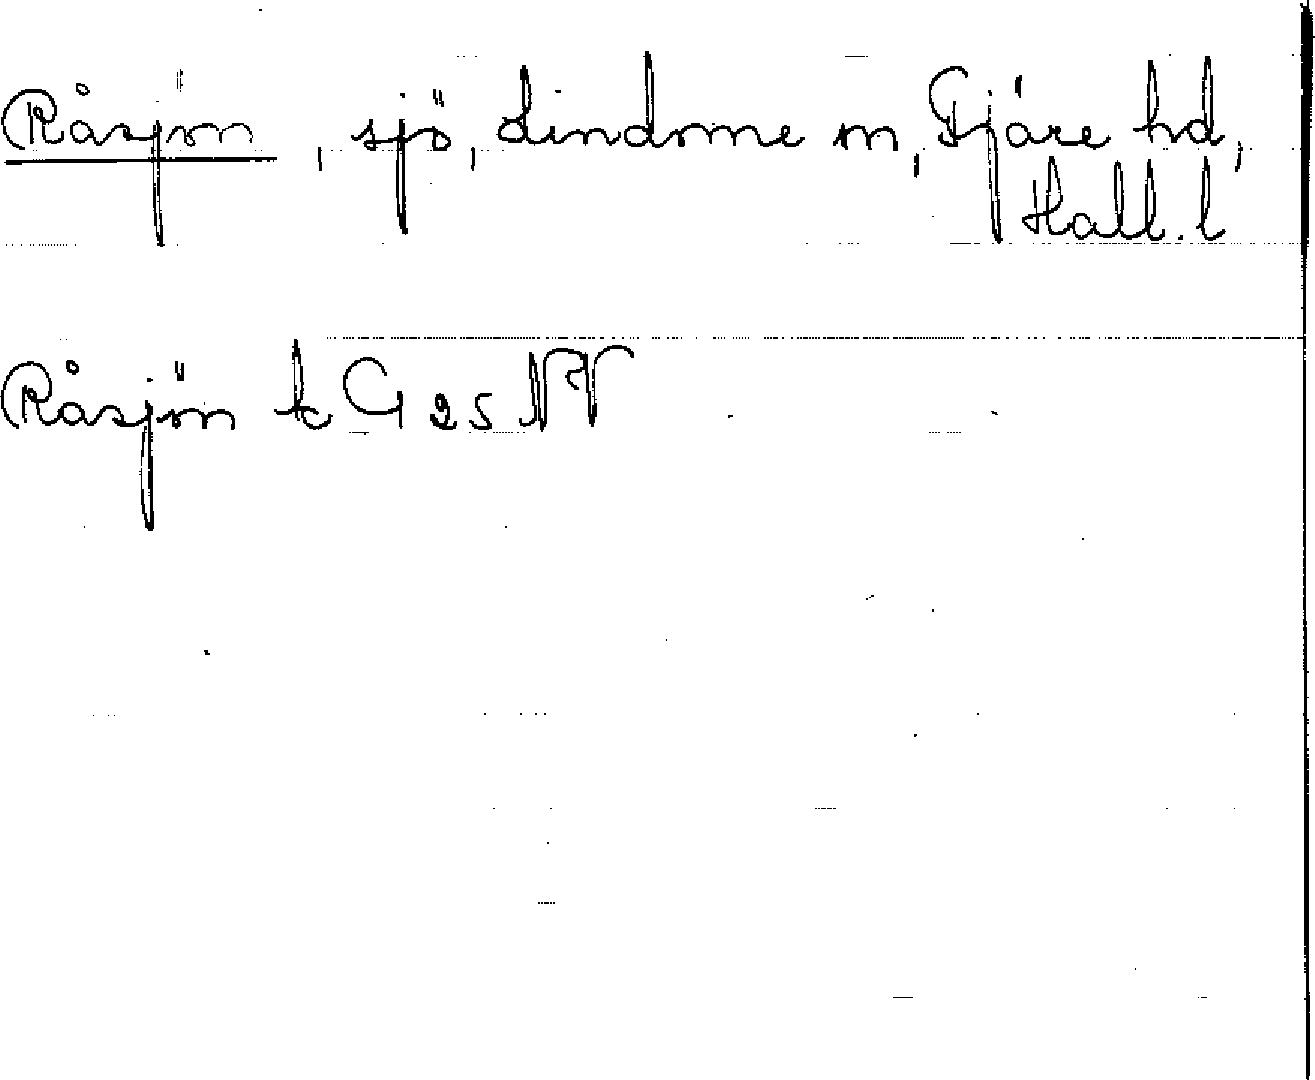 Råsjön, sjö, Lindome sn, Fjäre hd,
Hall. l
Råsjön tc G 25 NV